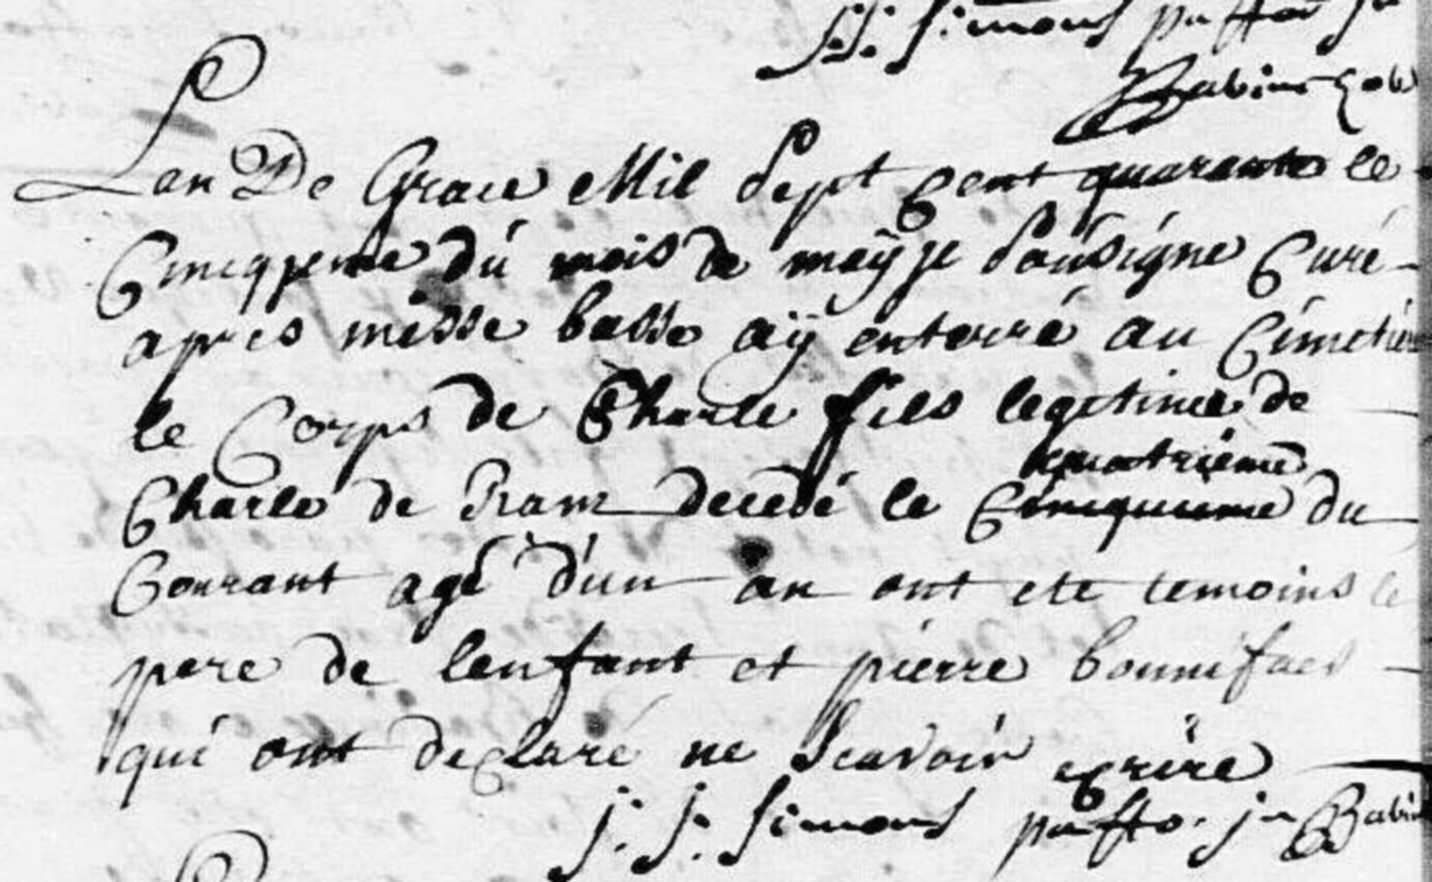 j. j. simons pastor in
Babin
Lan De Grace Mil Sept Cent quarante le
Cincqyeme du mois de meÿ je Sousigne Curé
apres messe basse aÿ enterré au Cimetiere
le Corps de Charle fils legetime de
quatrieme
Charle de decedé le Cincquieme du
Courant agé d'un an ont ete temoins le
pere de lenfant et pierre bonnifaes
qui ont declaré ne Scavoir ecrire
j. j. simons pasto. in Babin